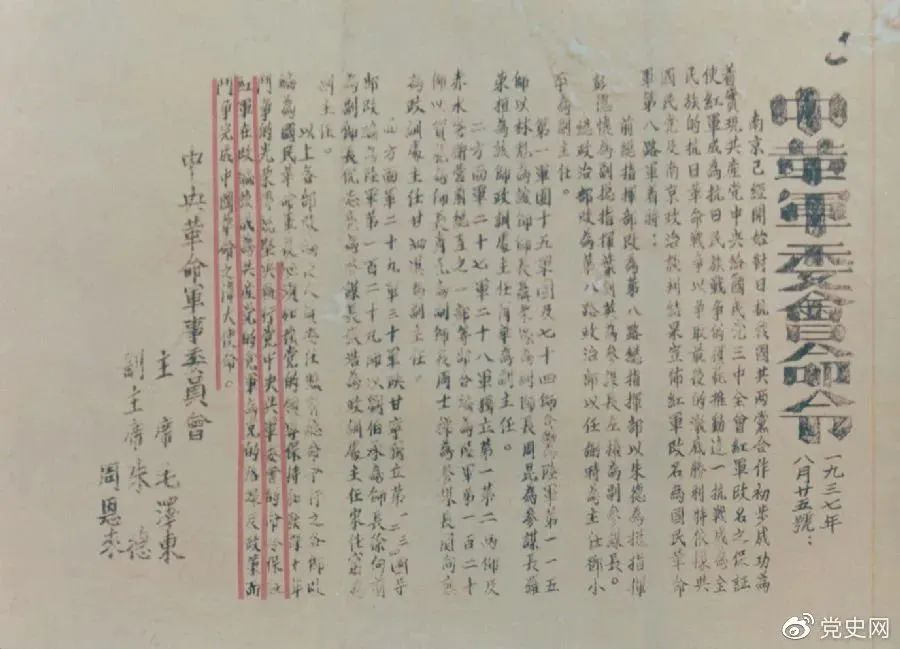 中革軍委會命令
一九三七年
八月廿五號：
南京已經開始對日抗戰國共兩黨合作初步成功為
着實現共產黨中央給國民黨三中全會紅軍改名之保証
使紅軍成為抗日民族戰爭的模範推動這一抗戰成為全
民族的抗日革命戰爭以爭取最後的澈底勝利特依據與
國民黨及南京政治談判結果宣佈紅軍改名為國民革命
軍第八路軍着將：
前總指揮部改為第八路總指揮部以朱德為總指揮
彭德懷為副總指揮葉劍英為參謀長左權為副參謀長。
總政治部改為第八路政治部以任弼時為主任鄧小
平為副主任。
第一軍團十五軍團及七十四師合編陸軍第一一五
師以林彪為該師師長聶榮臻為副師長周昆為參謀長羅
榮桓為該師政訓處主任蕭華為副主任。
二方面軍二十七軍二十八軍獨立第一第二兩師及
赤水警衛營前總直之一部等部合編為陸軍第一百二十
師以賀龍為師長蕭克為副師長周士第為參謀長關向應
為政訓處主任甘泗淇為副主任。
四方面軍二十九軍三十軍陝甘寧獨立第一二三四等
師改編為陸軍第一百二十九師以劉伯承為師長徐向前
為副師長倪志亮為參謀長張浩為政訓處主任宋任窮為
副主任。
以上各部改編後人員委任照前總命令行之各部改
編為國民革命軍後必須加強黨的領導保持和發揮十年
鬥爭的光榮傳統堅決執行黨中央與軍委會的命令保証
紅軍在改編後成為共產黨的黨軍為黨的路線及政策而
鬥爭完成中國革命之偉大使命。
中央革命軍事委員會
主席毛澤東
副主席朱德
周恩來
党史网